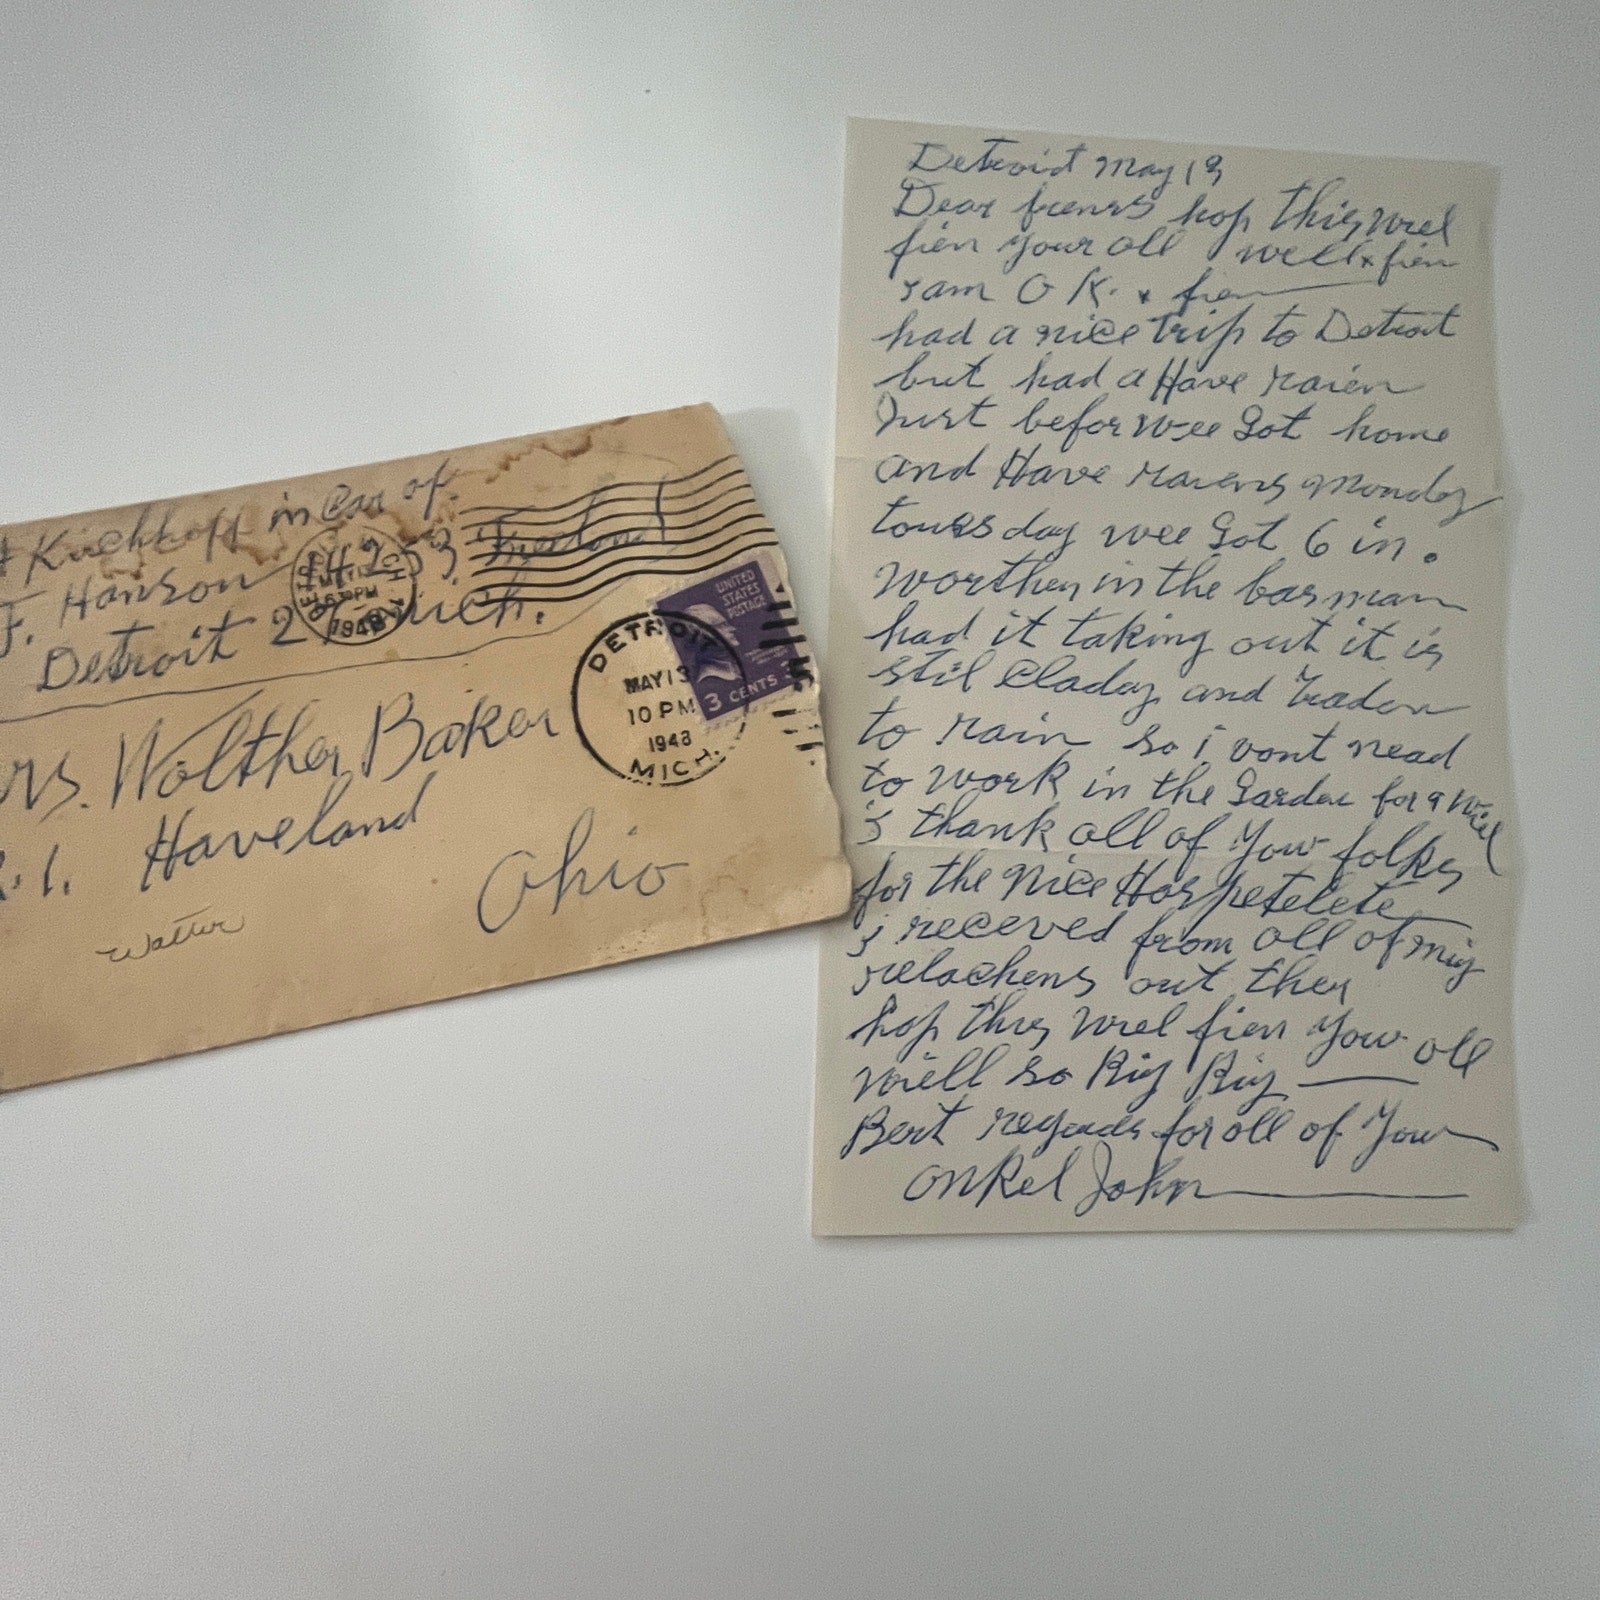 Kirchhoff in Car of
F. Hanson 14253 Freeland
Detroit 27 Mich.
DETROIT
MAY 13
10 PM
1948
MICH.
UNITED
STATES
POSTAGE
3 CENTS
1948
rs. Walther Baker
R. 1. Haveland
Ohio
Walter
Detroid May 13
Dear frends hop this wiel
fien your all well x fien
i am O K. x fien
had a nice trip to Detroit
but had a Have raien
Just befor wee Got home
and Have raiens Monday
touesday wee Got 6 in.
worther in the basman
had it taking out it is
stil Claday and Traden
to rain so i vont nead
to work in the Garden for a wiel
i thank all of You folks
for the nice Hospetelete
i receved from all of my
relachens out ther
hop this wiel fien You all
wiell so Biy Biy
Best regards for all of You
Onkel John